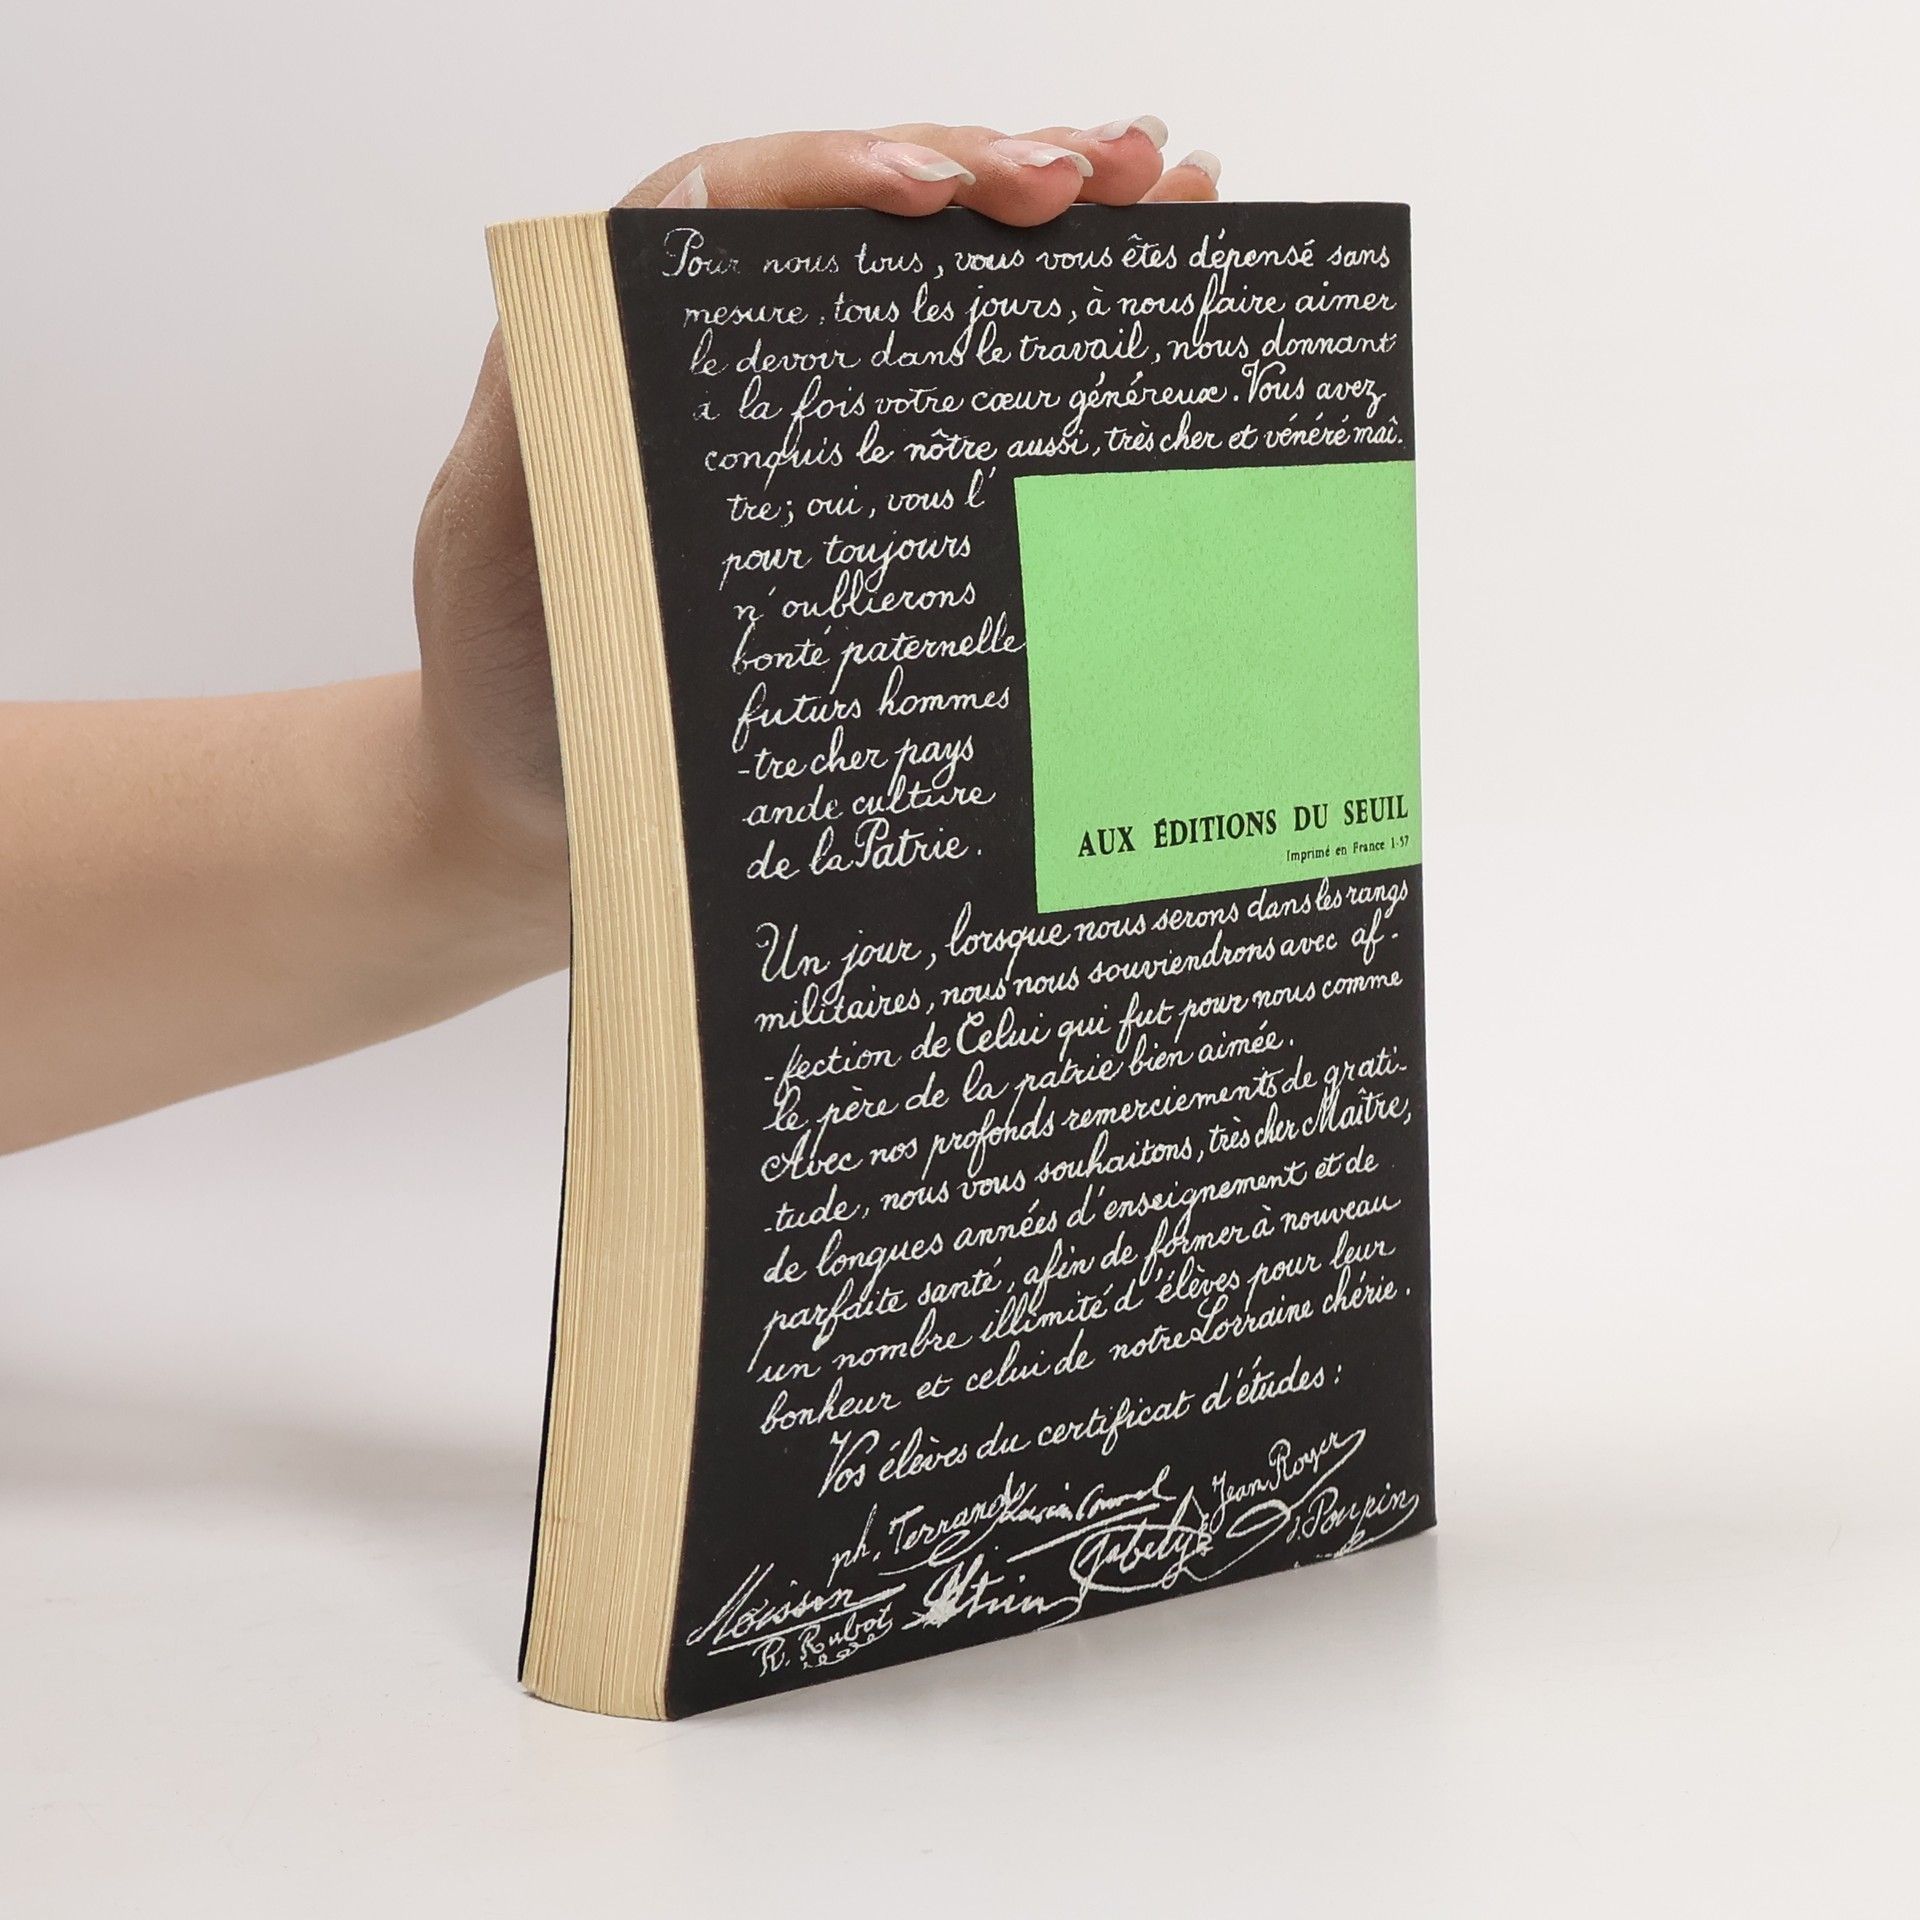 Pour nous tous, vous vous êtes dépensé sans
mesure, tous les jours, à nous faire aimer
le devoir dans le travail, nous donnant
à la fois votre cœur généreux. Vous avez
conquis le nôtre aussi, très cher et vénéré maî-
tre; oui, vous l'
pour toujours
n'oublierons
bonté paternelle
futurs hommes
-tre cher pays
ande culture
de la Patrie.
AUX ÉDITIONS DU SEUIL
Imprimé en France 1-57
Un jour, lorsque nous serons dans les rangs
militaires, nous nous souviendrons avec af-
-fection de Celui qui fut pour nous comme
le père de la patrie bien aimée.
Avec nos profonds remerciements de grati-
-tude, nous vous souhaitons, très cher Maître,
de longues années d'enseignement et de
parfaite santé, afin de former à nouveau
un nombre illimité d'élèves pour leur
bonheur et celui de notre Lorraine chérie.
Vos élèves du certificat d'études :
ph. Terrand Jean Royer
Poupin
Moisson Gabely
R. Rubot